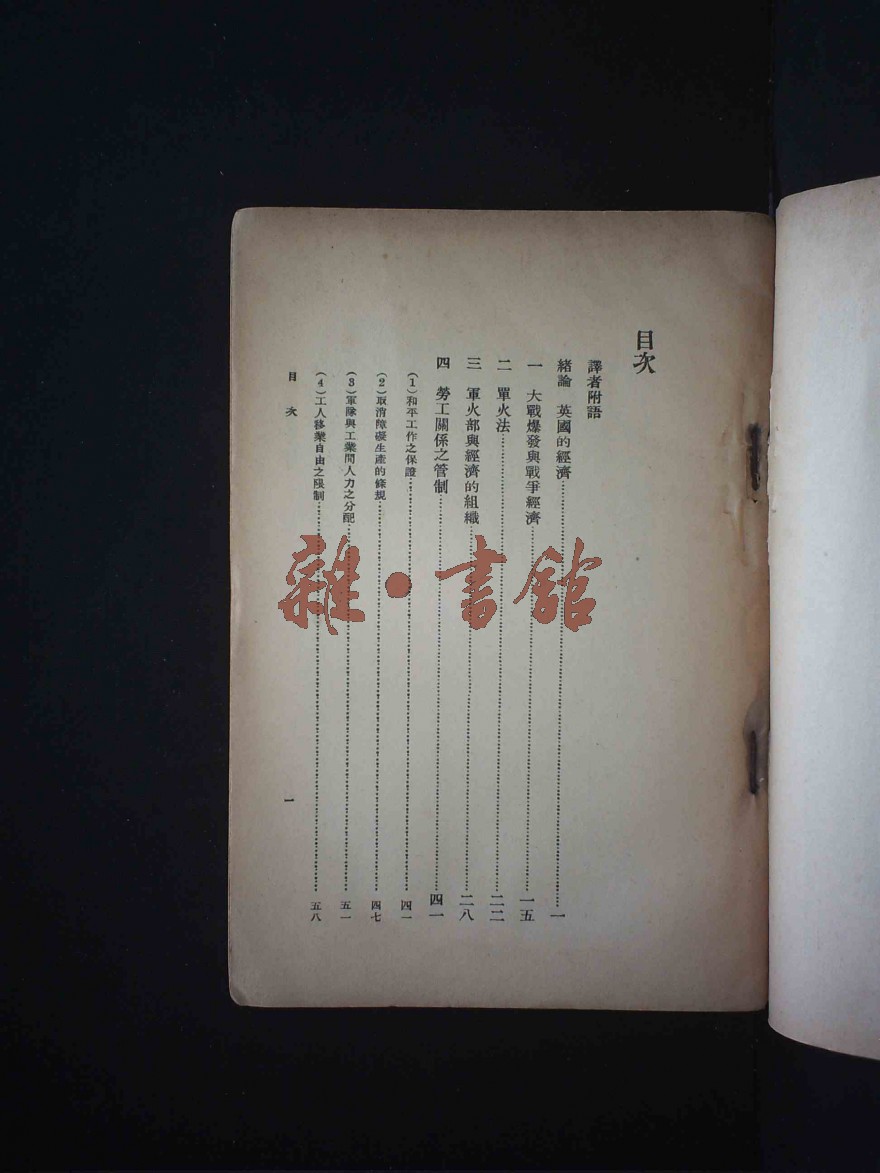 目次
譯者附語
緒論　英國的經濟……一
一　大戰爆發與戰爭經濟……一五
二　單火法……二二
三　軍火部與經濟的組織……二八
四　勞工關係之管制……四一
(1)和平工作之保證……四一
(2)取消障礙生產的條規……四七
(3)軍隊與工業間人力之分配……五一
(4)工人移業自由之限制……五八
目次　一
雜·書館